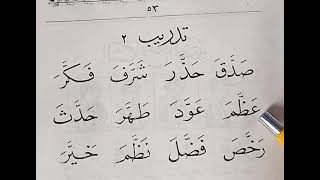 ٥٣
تدريب ٢
صَدَّقَ حَذَّرَ شَرَّفَ فَكَّرَ
عَظَّمَ عَوَّدَ طَهَّرَ حَدَّثَ
رَخَّصَ فَضَّلَ نَظَّمَ خَيَّرَ